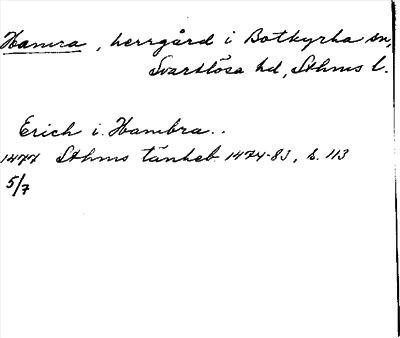 Hamra, herrgård i Botkyrka sn,
Svartlösa hd, Sthms l.
Erich i Hambra..
1477 Sthms tänkeb. 1474-83, s. 113
5/7